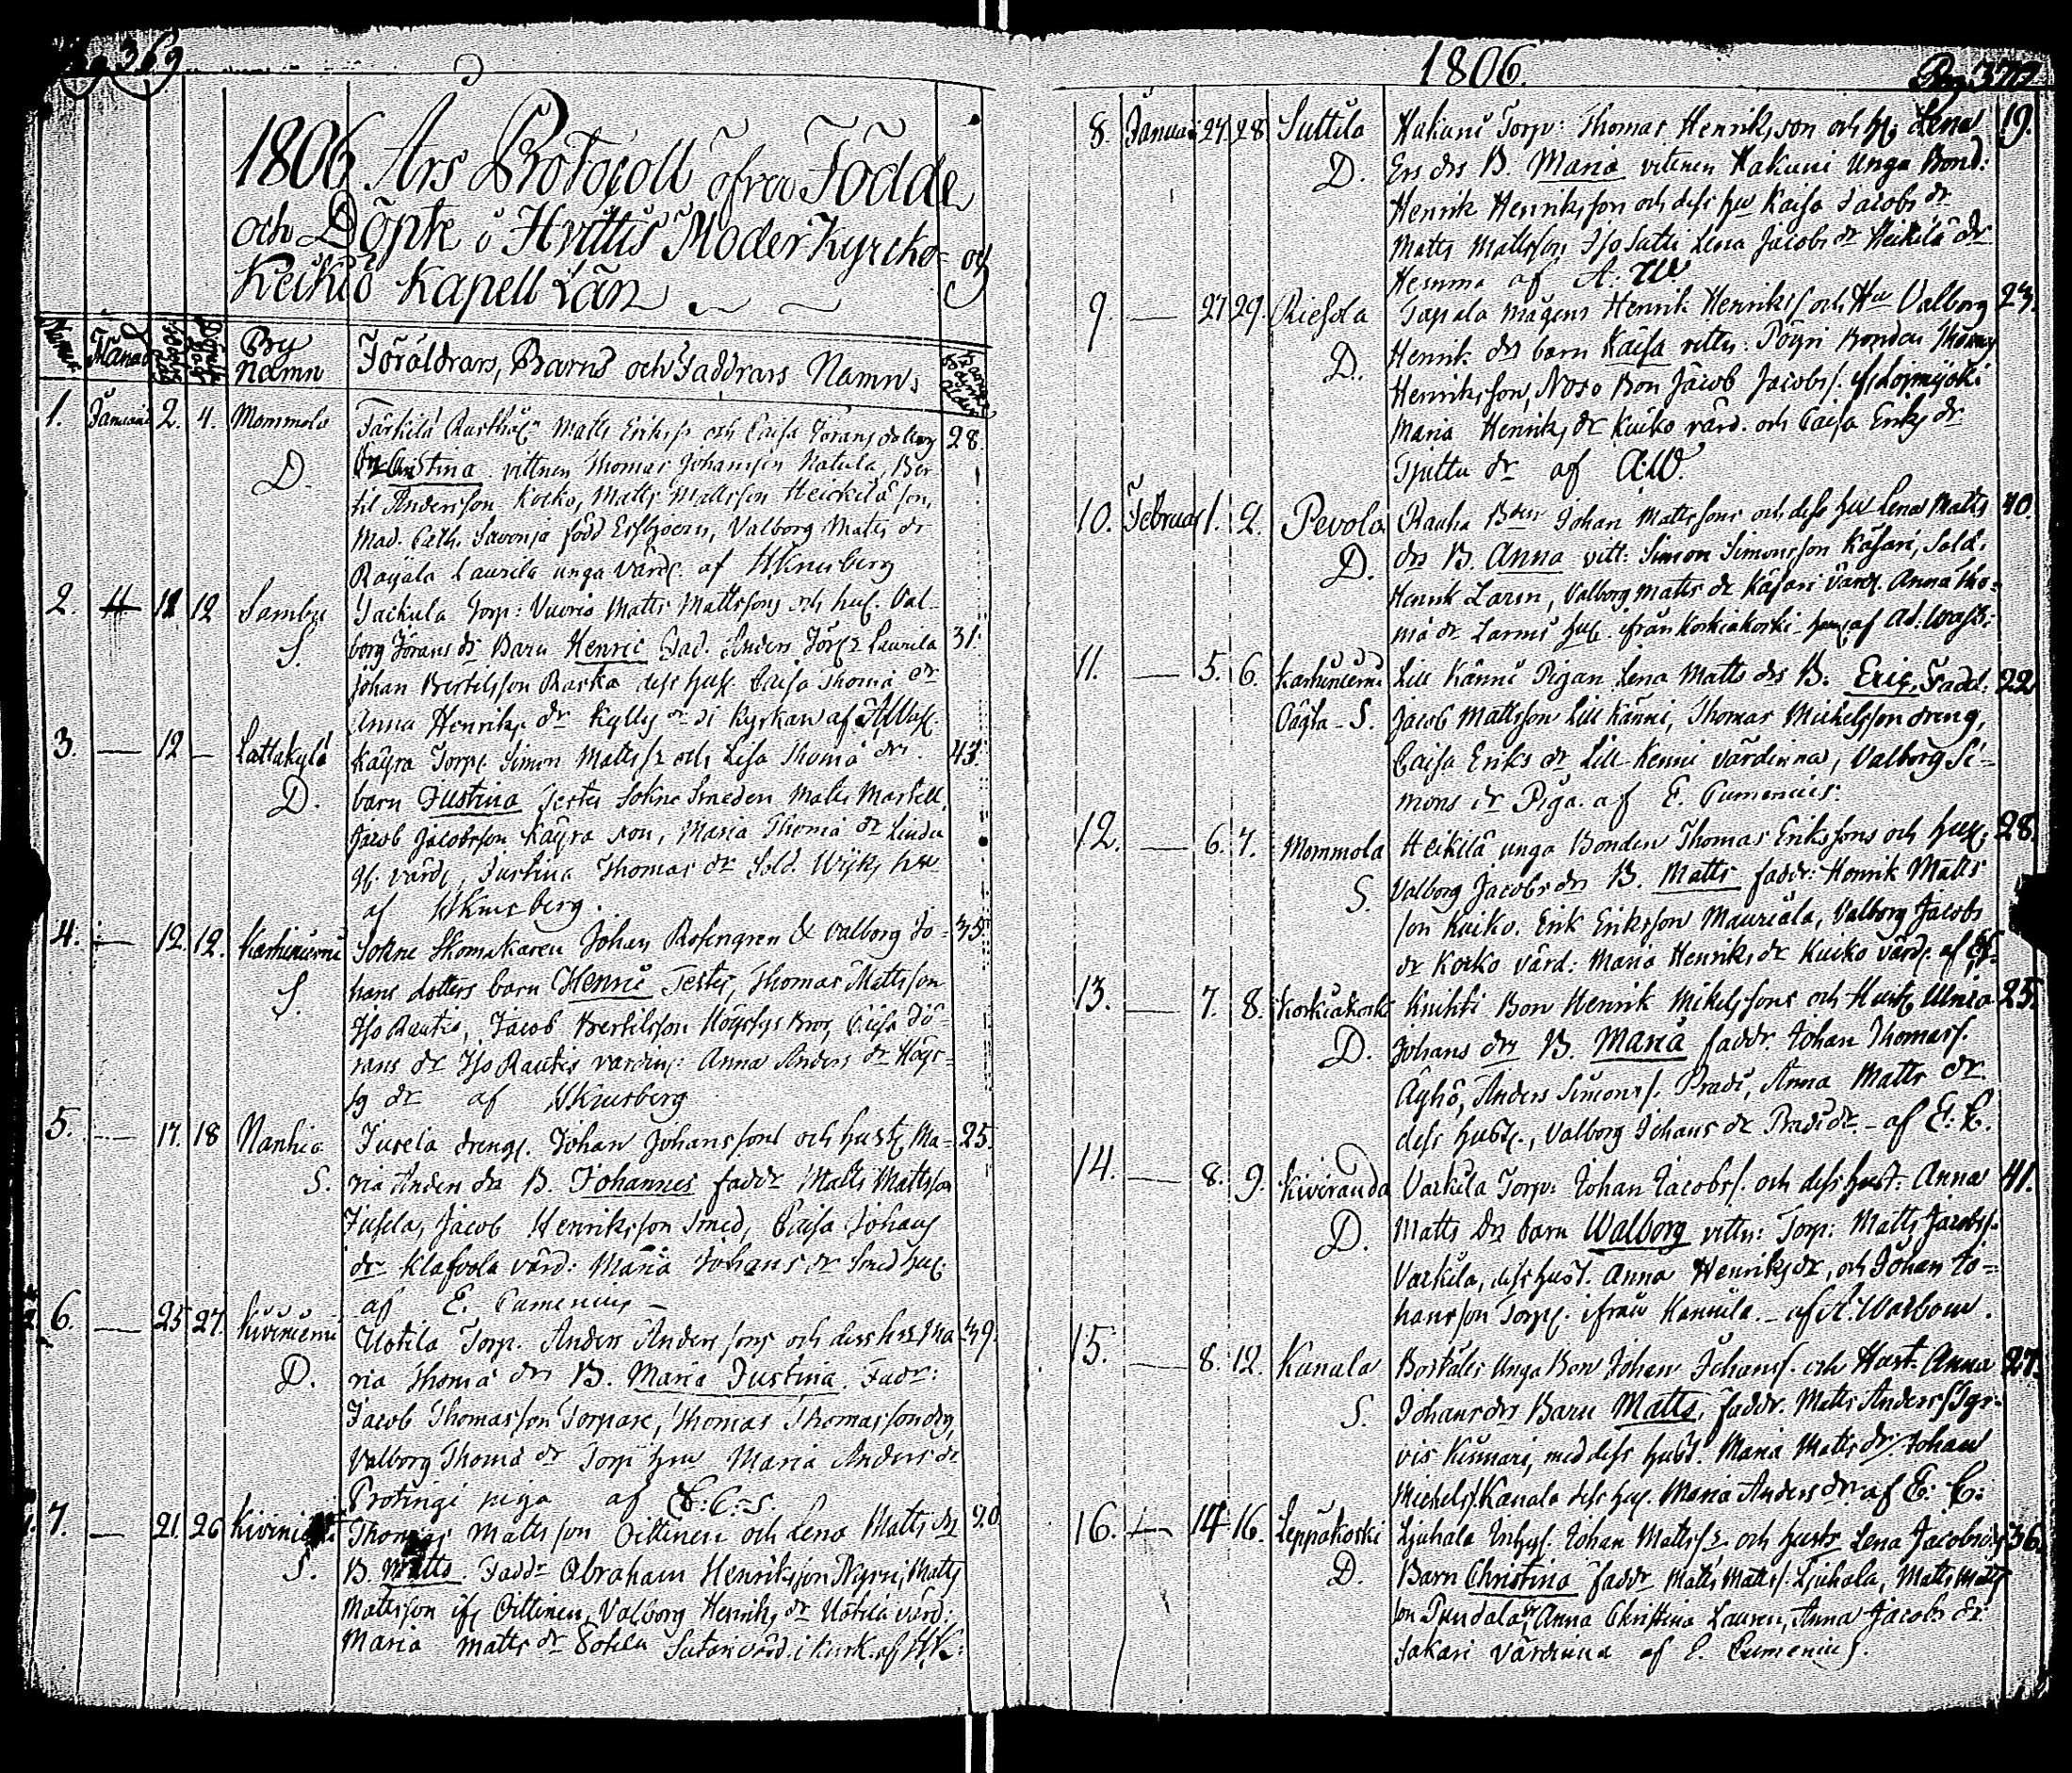 369
1806 Års Protocoll öfver Födde
och Döpte i Hvittis Moder Kyrcko- och
Keikiö Kapell Län
Numer Månad By namn Föräldrars, Barns och Faddrars Namn.
1. Januarii 2. 4. Mommola Matts Eriks och Caisa Jörans 28.
D. Christina vittnen Thomas Johansson Natula, Ber
til Andersson Kocko, Matts Mattsson Heickilä son,
Mad. Cath. född Valborg Matts dr
Laurila unga värd. af
2. 11 12 Sambu Torp: Vuorio Matts Mattssons och hus. Val-
S. borg Jörans dr Barn Henric Fad. Anders Laurila 31.
Johan Bertilsson Raska dess hus. Caisa Thoma dr
Anna Henriks dr Kylly dr i kyrkan af
3. — 12 — Lattakylä Käyrä Torp. Simon Matts och Lisa Thoma drs 43.
D. barn Justina Testes Sokne Smeden Matts Martell,
Jacob Jacobsson Käyrä son, Maria Thoma dr
värd, Justina Thomas dr Sold. Wijks hu
af
4. — 12. 12. Karhiniemi Sokne Skomakaren Johan Rosengren & Valborg Jo- 35.
S. hans dotters barn Henric Testes, Thomas Mattsson
Iso Rautio, Jacob Bertilsson Caisa Jö-
rans dr Iso Rautio värdin: Anna Anders dr
dr af
5. — 17. 18 Nanhia Jusela dreng. Johan Johanssons och hust. Ma- 25.
S. ria Anders drs B. Johannes fadd. Matts Mattsson
Jusela, Jacob Henriksson Smed, Caisa Johans
dr Klafvola värd: Maria Johans dr Smed hus.
af E. Cumenius
6. — 25 27. Kiviniemi Uotila Torp. Anders Anderssons och dess hu Ma- 39.
D. ria Thoma drs B. Maria Justina. Fadr:
Jacob Thomasson Torpare, Thomas Thomasson
Valborg Thoma dr Torp hu Maria Anders dr
piga af E: C:s.
7. — 21. 26 Thomas Mattsson Oittinen och Lena Matts drs 20.
S. B. Matts. Fadd Abraham Henriksson Nyrri, Matts
Mattsson Oittinen, Valborg Henriks dr Uotila värd:
Maria Matts dr värd. i kirk. af H.K:
1806. Pag. 370
8. Januarii 27. 28. Suttila Hakuni Torp: Thomas Henriksson och h. Lena 19.
D. Ers drs B. Maria vitnen Hakuni Unga Bond:
Henrik Henriksson och dess hu Kaisa Jacobs dr
Matts Mattsson Iso Sutti Lena Jacobs dr Heikilä dr
Hemma af A: W
9. — 27 29. Riesola Tapala mågens Henrik Henriks och Hu Valborg 23.
D. Henrik drs barn Kaisa vittn: Pöyri Bonden Thomas
Henriksson, Noso Bon Jacob Jacobs.
Maria Henriks dr Kuiko värd. och Caisa Eriks dr
dr af A:W.
10. Februar 1. 2. Pevola Rauha Johan Mattssons och dess hu Lena Matts 40.
D. drs B. Anna vitt: Simon Simonsson Käsari, Sold.
Henrik Larin, Valborg Matts dr Käsari värd. Anna Tho-
ma dr Larins hus. ifrån Korkiakoski af Ad:
11. — 5. 6. Karhiniemi Lill Känni Pigan Lena Matts drs B. Eric, Fadd: 22
S. Jacob Mattsson Lill Känni, Thomas Michelsson dreng,
Caisa Eriks dr Lill-Kenni värdinna, Valborg Si-
mons dr Piga. af E. Cumenius.
12. — 6. 7. Mommola Heikilä unga Bonden Thomas Erikssons och hus. 28.
S. Valborg Jacobs drs B. Matts faddr: Henrik Matts
son Kuiko. Erik Eriksson Mauriala, Valborg Jacobs
dr Kocko värd: Maria Henriks dr Kuiko värd. af
13. — 7. 8. Korkiakoski Knihti Bon Henrik Mikelssons och Hust. Ulrica 25.
D. Johans drs B. Maria faddr. Johan Thomass.
Äyhö, Anders Simons. Pradi, Anna Matts dr
dess hust., Valborg Johans dr Pradi dr. af E: C.
14. — 8. 9. Kiviranda Varkila Torp: Johan Jacobs. och dess hust. Anna 41.
D. Matts drs barn Walborg vittn: Torp: Matts Jacobs.
Varkila, dess hust. Anna Henriks dr, och Johan Jo-
hansson Torp. ifrån Kannila. af A. Warbom.
15. — 8. 12. Kanala Unga Bon Johan Johans. och Hust. Anna 27.
S. Johans drs Barn Matts, faddr. Matts Anders
med dess hust. Maria Matts dr. Johan
Michels. Kanala dess hus. Maria Anders dr af E: C:
16. — 14 16. Leppäkoski Ljuhala Inhys. Johan Matts och hustr Lena Jacobs 36
D. Barn Christina faddr Matts Matts. Ljuhala, Matts Matts
son Pundala, Anna Christina Lauren, Anna Jacobs dr
Sakari värdinna af E. Cumenius.